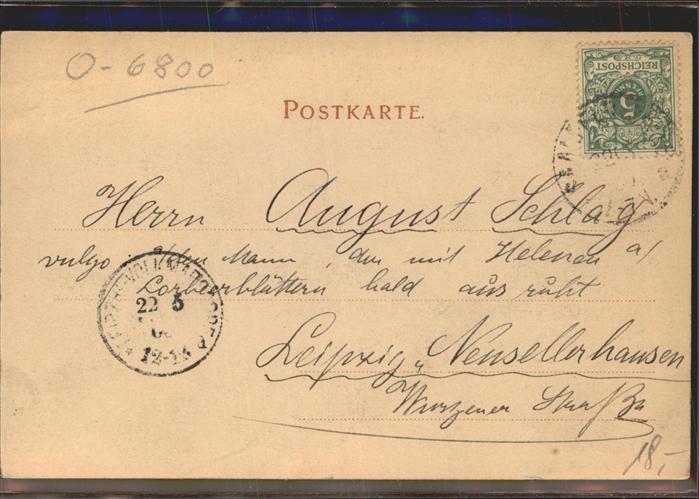 O-6800
REICHSPOST
5
POSTKARTE.
Herrn August Schlag
vulgo Mann, der mit Helenen a/
Lorbeerblättern bald aus ruht
LEIPZIG-VOLKMARSDORF
22 5
12-1
Leipzig „Neusellerhausen
Wurzener Straße
18,-